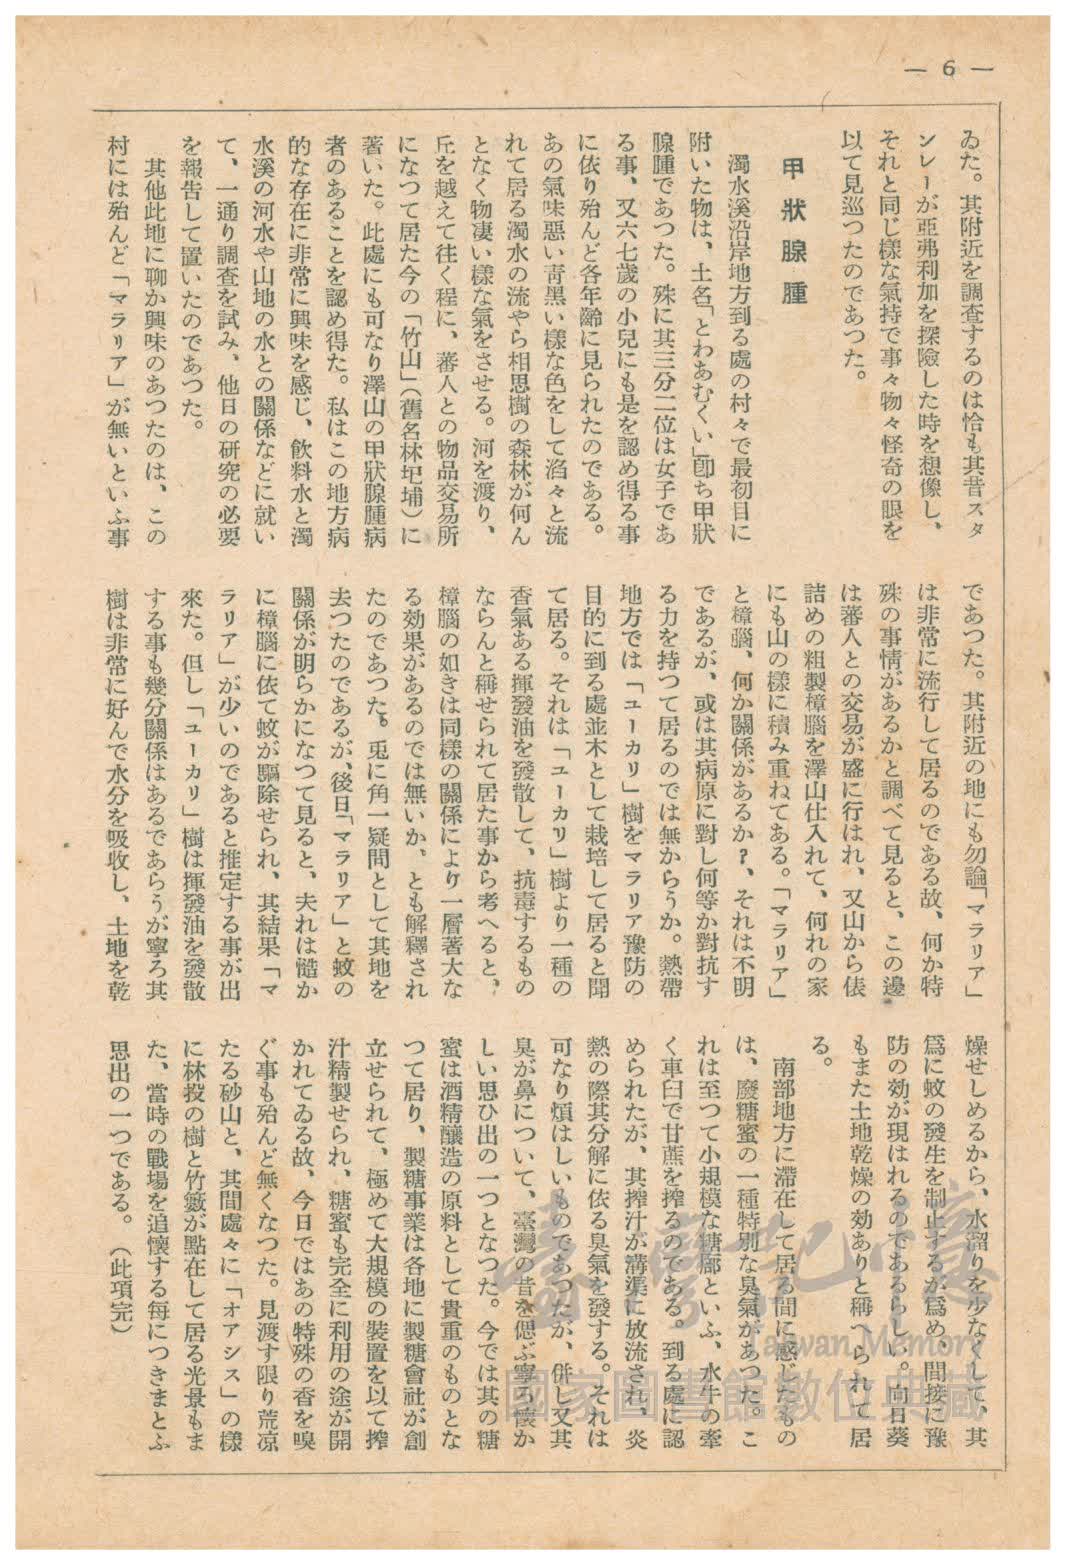 — 6 —
ゐた。其附近を調査するのは恰も其昔スタ
ンレーが亞弗利加を探險した時を想像し、
それと同じ樣な氣持で事々物々怪奇の眼を
以て見巡つたのであつた。
甲狀腺腫
濁水溪沿岸地方到る處の村々で最初目に
附いた物は、土名「とわあむくい」卽ち甲狀
腺腫であつた。殊に其三分二位は女子であ
る事、又六七歲の小兒にも是を認め得る事
に依り殆んど各年齡に見られたのである。
あの氣味惡い靑黑い樣な色をして滔々と流
れて居る濁水の流やら相思樹の森林が何ん
となく物凄い樣な氣をさせる。河を渡り、
丘を越えて往く程に、蕃人との物品交易所
になつて居た今の「竹山」(舊名林圯埔)に
著いた。此處にも可なり澤山の甲狀腺腫病
者のあることを認め得た。私はこの地方病
的な存在に非常に興味を感じ、飮料水と濁
水溪の河水や山地の水との關係などに就い
て、一通り調査を試み、他日の研究の必要
を報告して置いたのであつた。
其他此地に聊か興味のあつたのは、この
村には殆んど「マラリア」が無いといふ事
であつた。其附近の地にも勿論「マラリア」
は非常に流行して居るのである故、何か特
殊の事情があるかと調べて見ると、この邊
は蕃人との交易が盛に行はれ、又山から俵
詰めの粗製樟腦を澤山仕入れて、何れの家
にも山の樣に積み重ねてある。「マラリア」
と樟腦、何か關係があるか?、それは不明
であるが、或は其病原に對し何等か對抗す
る力を持つて居るのでは無からうか。熱帶
地方では「ユーカリ」樹をマラリア豫防の
目的に到る處並木として栽培して居ると聞
て居る。それは「ユーカリ」樹より一種の
香氣ある揮發油を發散して、抗毒するもの
ならんと稱せられて居た事から考へると、
樟腦の如きは同樣の關係により一層著大な
る効果があるのでは無いか、とも解釋され
たのであつた。兎に角一疑問として其地を
去つたのであるが、後日「マラリア」と蚊の
關係が明らかになつて見ると、夫れは慥か
に樟腦に依て蚊が驅除せられ、其結果「マ
ラリア」が少いのであると推定する事が出
來た。但し「ユーカリ」樹は揮發油を發散
する事も幾分關係はあるであらうが寧ろ其
樹は非常に好んで水分を吸收し、土地を乾
燥せしめるから、水溜りを少なくして、其
爲に蚊の發生を制止するが爲め、間接に豫
防の効が現はれるのであるらしい。向日葵
もまた土地乾燥の効ありと稱へられて居
る。
南部地方に滯在して居る間に感じたもの
は、廢糖蜜の一種特別な臭氣があつた。こ
れは至つて小規模な糖廍といふ、水牛の牽
く車臼で甘蔗を搾るのである。到る處に認
められたが、其搾汁が溝渠に放流され、炎
熱の際其分解に依る臭氣を發する。それは
可なり煩はしいものであつたが、併し又其
臭が鼻について、臺灣の昔を偲ぶ寧ろ懷か
しい思ひ出の一つとなつた。今では其の糖
蜜は酒精釀造の原料として貴重のものとな
つて居り、製糖事業は各地に製糖會社が創
立せられて、極めて大規模の裝置を以て搾
汁精製せられ、糖蜜も完全に利用の途が開
かれてゐる故、今日ではあの特殊の香を嗅
ぐ事も殆んど無くなつた。見渡す限り荒凉
たる砂山と、其間處々に「オアシス」の樣
に林投の樹と竹籔が點在して居る光景もま
た、當時の戰場を追懷する每につきまとふ
思出の一つである。(此項完)
臺灣記憶
Taiwan Memory
國家圖書館數位典藏